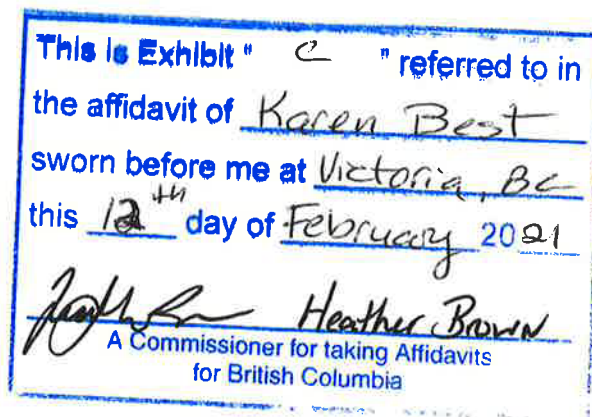 This is Exhibit " C " referred to in
the affidavit of Karen Best
sworn before me at Victoria, BC
this 12th day of February 2021
Heather Brown
A Commissioner for taking Affidavits
for British Columbia